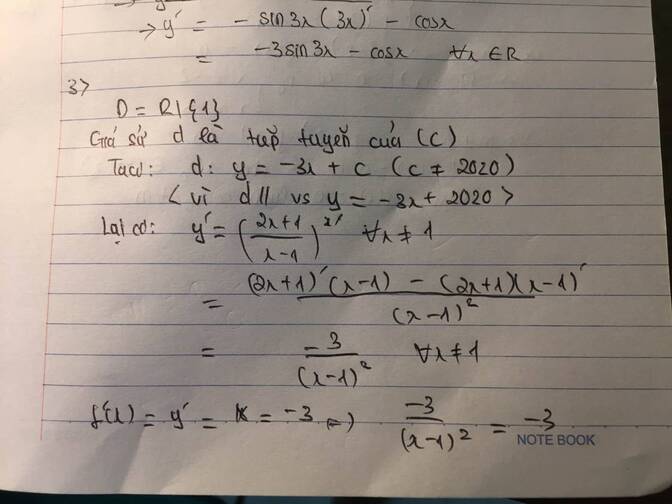 → y' = - sin3x (3x)' - cosx
= -3sin3x - cosx ∀x ∈ R
3>
D = R\{1}
Giả sử d là tiếp tuyến của (C)
Ta có: d: y = -3x + c (c ≠ 2020)
< vì d // vs y = -3x + 2020 >
Lại có: y' = ((2x+1)/(x-1))' ∀x ≠ 1
= ((2x+1)'(x-1) - (2x+1)(x-1)')/(x-1)²
= -3/(x-1)² ∀x ≠ 1
f'(x) = y' = k = -3 => -3/(x-1)² = -3
NOTE BOOK